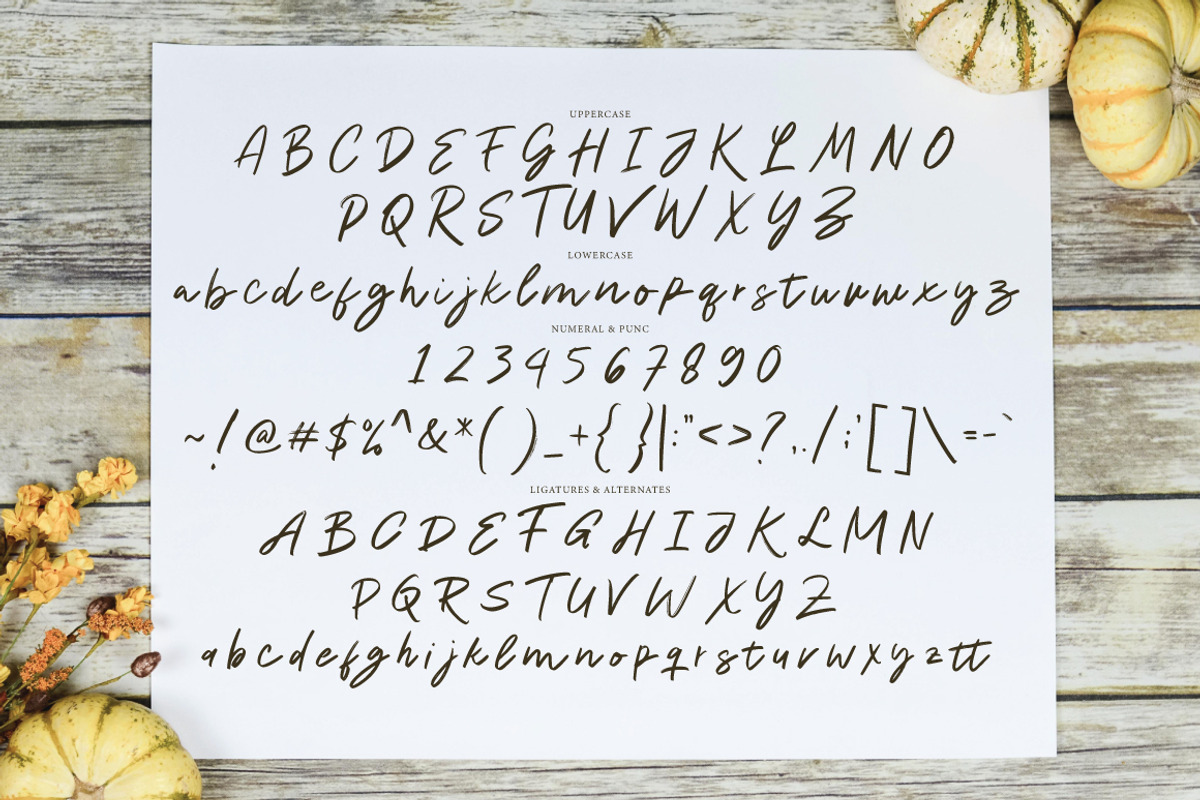 UPPERCASE
A B C D E F G H I J K L M N O
P Q R S T U V W X Y Z
LOWERCASE
a b c d e f g h i j k l m n o p q r s t u v w x y z
NUMERAL & PUNC
1 2 3 4 5 6 7 8 9 0
~ ! @ # $ % ^ & * ( ) _ + { } | : " < > ? , . / ; ' [ ] \ = - `
LIGATURES & ALTERNATES
A B C D E F G H I J K L M N
P Q R S T U V W X Y Z
a b c d e f g h i j k l m n o p q r s t u v w x y z tt